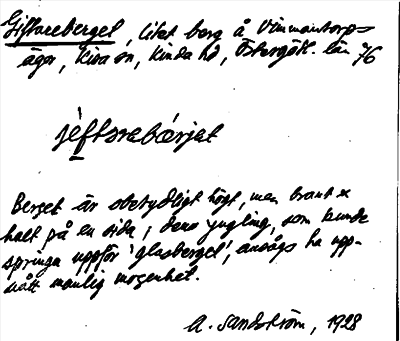 Giftareberget, litet berg å Vimmantorps
ägor, Kisa sn, Kinda hd, Östergötl. län 76
jèftarebárjat
Berget är obetydligt högt, men brant x
halt på en sida; dens yngling, som kunde
springa uppför 'glasberget', ansågs ha upp-
nått manlig mogenhet.
A. Sandström, 1928